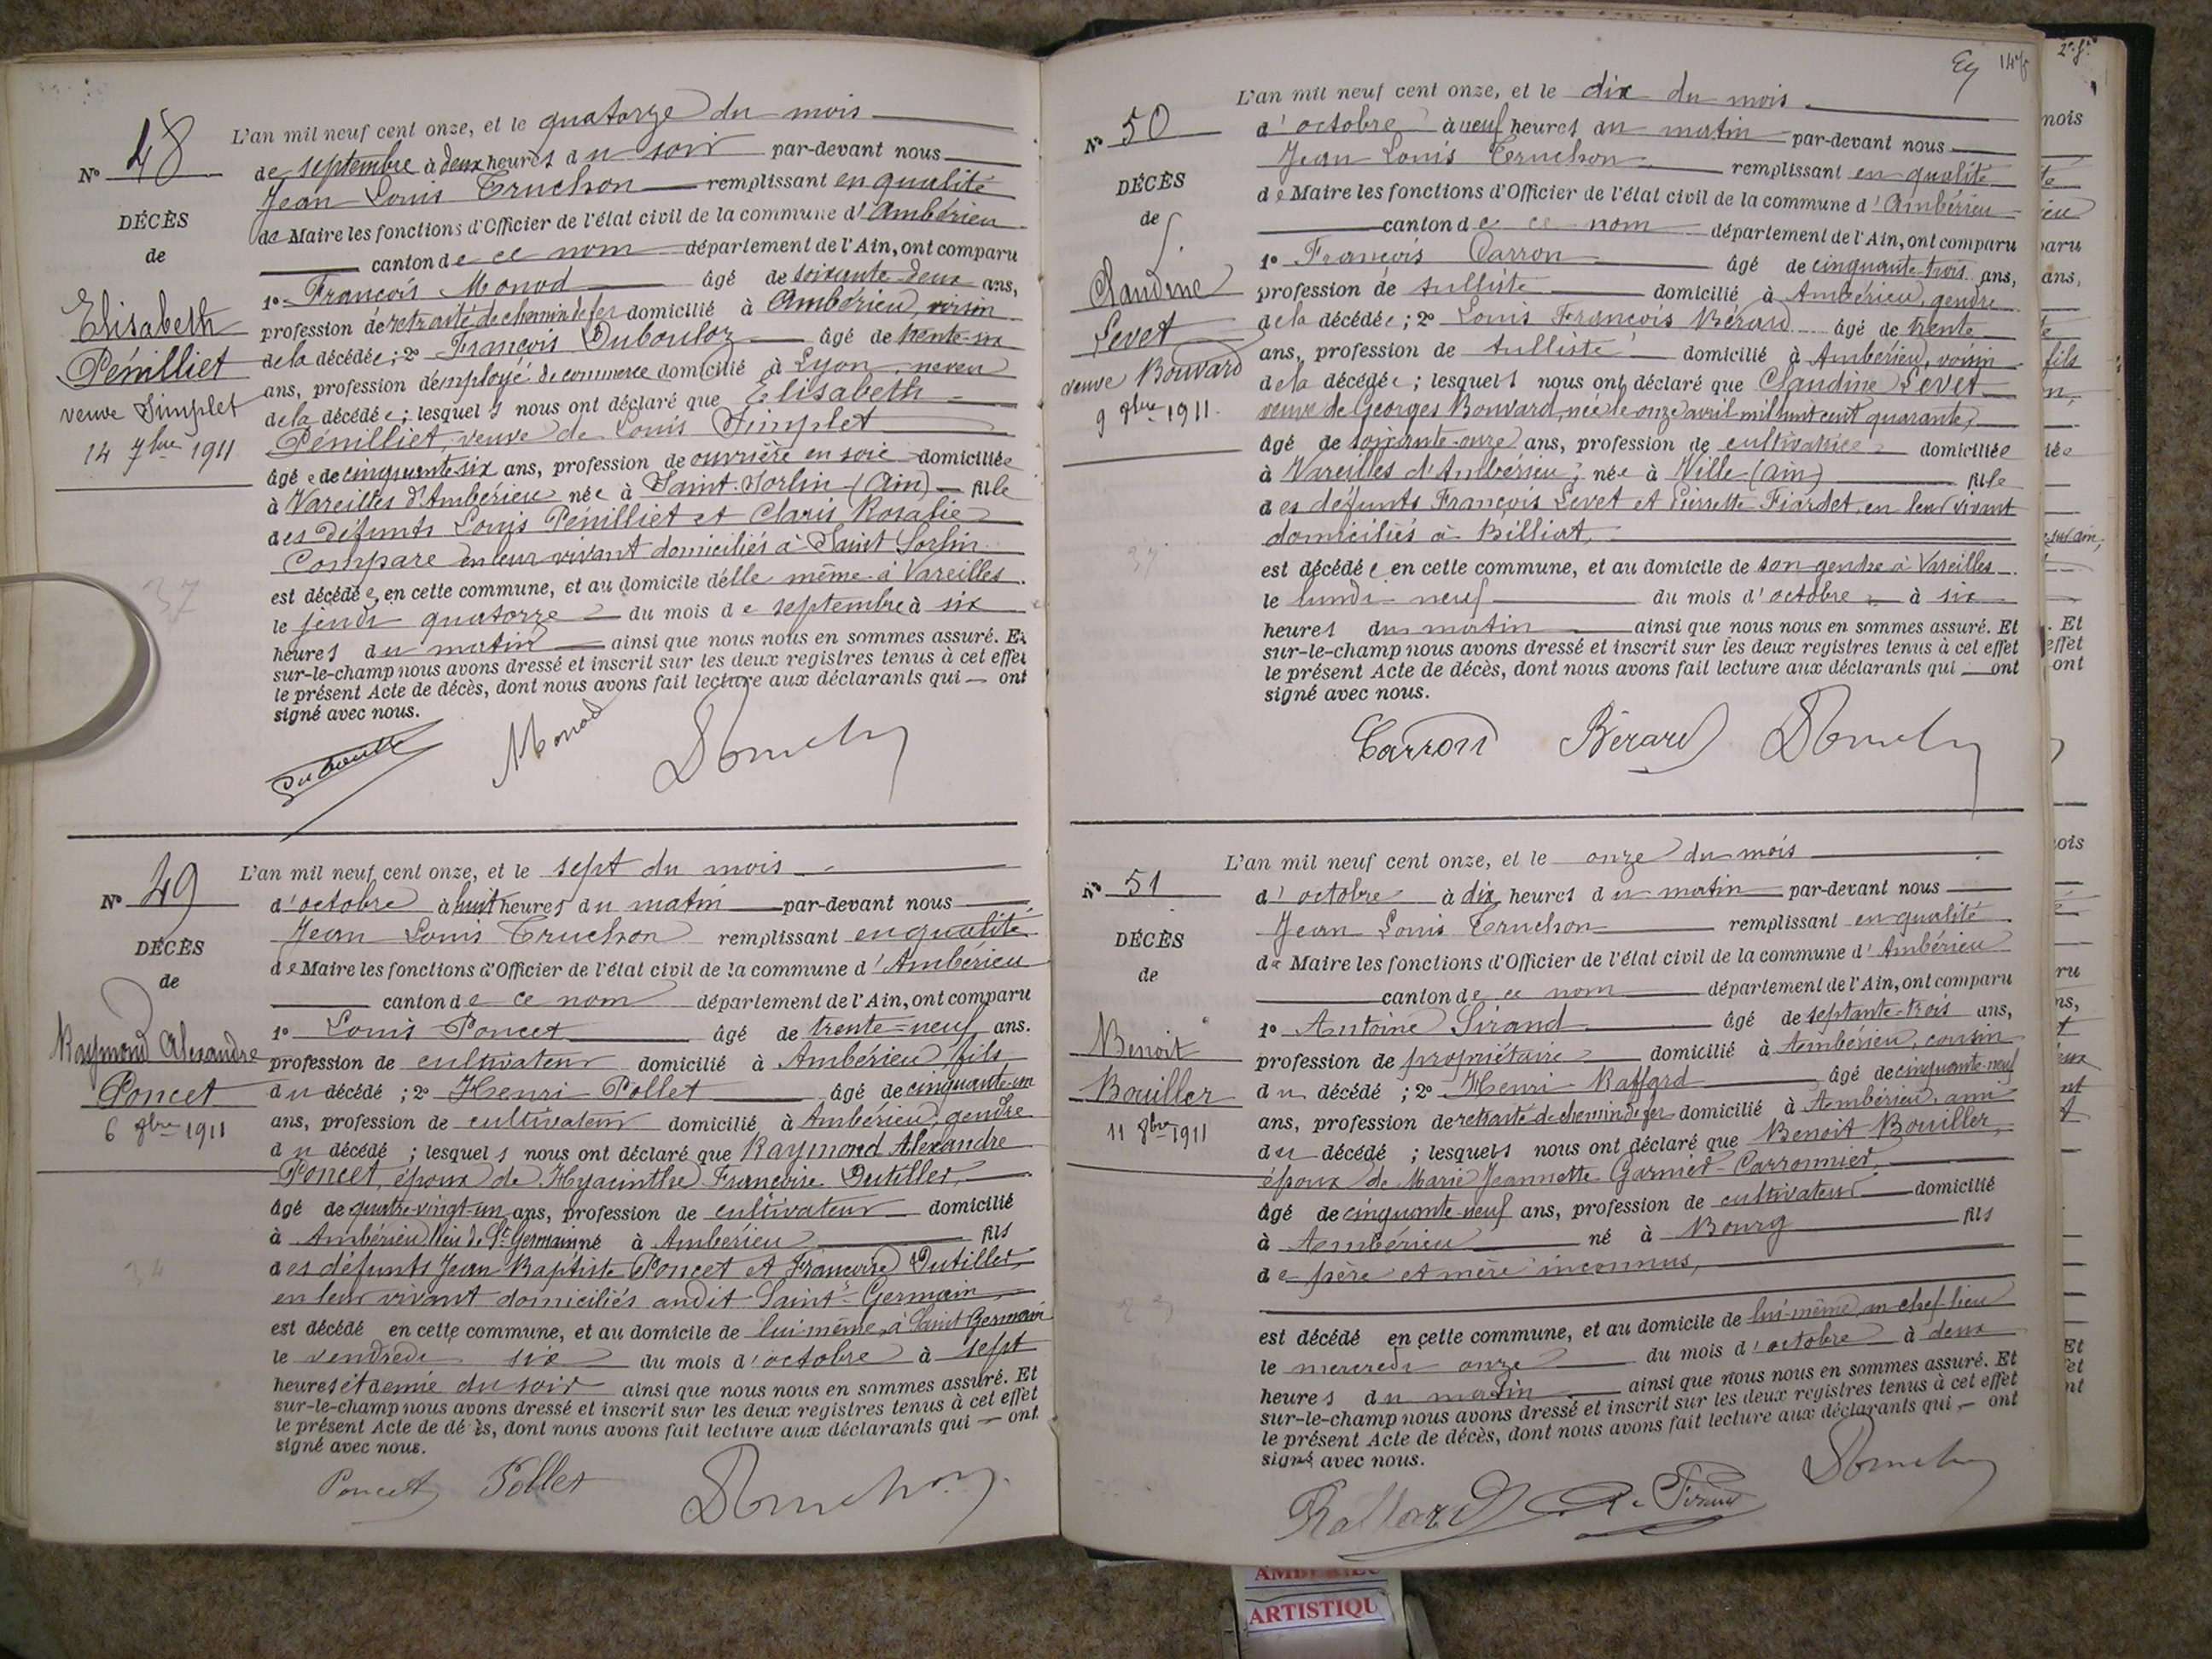 L'an mil neuf cent onze, et le quatorze du mois
N° 48
de septembre à deux heures du soir par-devant nous
Jean Louis Truchon remplissant en qualité
DÉCÈS
de Maire les fonctions d'Officier de l'état civil de la commune d'Ambérieu
de
canton de ce nom département de l'Ain, ont comparu
1° François Monod âgé de soixante-deux ans,
Elisabeth
profession de retraité de chemin de fer domicilié à Ambérieu, voisin
de la décédée; 2° François Dubouloz âgé de trente-six
Pénilliet
ans, profession d'employé de commerce domicilié à Lyon, neveu
veuve Simplet
de la décédée; lesquels nous ont déclaré que Elisabeth
14 7bre 1911
Pénilliet, veuve de Louis Simplet
âgée de cinquante-six ans, profession de ouvrière en soie domiciliée
à Vareilles d'Ambérieu née à Saint-Sorlin (Ain) fille
des défunts Louis Pénilliet et Claris Rosalie
Compare en leur vivant domiciliés à Saint Sorlin
est décédée en cette commune, et au domicile d'elle même à Vareilles
le jeudi quatorze du mois de septembre à six
heures du matin ainsi que nous nous en sommes assuré. Et
sur-le-champ nous avons dressé et inscrit sur les deux registres tenus à cet effet
le présent Acte de décès, dont nous avons fait lecture aux déclarants qui ont
signé avec nous.
Monod
L'an mil neuf cent onze, et le sept du mois
N° 49
d'octobre à huit heures du matin par-devant nous
Jean Louis Truchon remplissant en qualité
DÉCÈS
de Maire les fonctions d'Officier de l'état civil de la commune d'Ambérieu
de
canton de ce nom département de l'Ain, ont comparu
1° Louis Poncet âgé de trente-neuf ans.
Raymond Alexandre
profession de cultivateur domicilié à Ambérieu fils
Poncet
du décédé; 2° Henri Pollet âgé de cinquante-un
6 8bre 1911
ans, profession de cultivateur domicilié à Ambérieu, gendre
du décédé; lesquels nous ont déclaré que Raymond Alexandre
Poncet, époux de Hyacinthe Françoise Dutiller,
âgé de quatre-vingt-un ans, profession de cultivateur domicilié
à Ambérieu lieu de St Germain né à Ambérieu fils
des défunts Jean-Baptiste Poncet et Françoise Dutiller,
en leur vivant domiciliés audit Saint-Germain
est décédé en cette commune, et au domicile de lui même, à Saint Germain
le vendredi six du mois d'octobre à sept
heures et demie du soir ainsi que nous nous en sommes assuré. Et
sur-le-champ nous avons dressé et inscrit sur les deux registres tenus à cet effet
le présent Acte de décès, dont nous avons fait lecture aux déclarants qui ont
signé avec nous.
Poncet Pollet Truchon
L'an mil neuf cent onze, et le dix du mois
N° 50
d'octobre à neuf heures du matin par-devant nous
Jean Louis Truchon remplissant en qualité
DÉCÈS
de Maire les fonctions d'Officier de l'état civil de la commune d'Ambérieu
de
canton de ce nom département de l'Ain, ont comparu
1° François Carron âgé de cinquante-trois ans,
Claudine
profession de tulliste domicilié à Ambérieu, gendre
Levet
de la décédée; 2° Louis François Bérard âgé de trente
ans, profession de tulliste domicilié à Ambérieu, voisin
veuve Bouvard
de la décédée; lesquels nous ont déclaré que Claudine Levet
9 8bre 1911.
veuve de Georges Bouvard, née le onze avril mil huit cent quarante,
âgé de soixante-onze ans, profession de cultivatrice domiciliée
à Vareilles d'Ambérieu; née à Ville (Ain) fille
des défunts François Levet et Pierrette Fiardet, en leur vivant
domiciliés à Billiat,
est décédée en cette commune, et au domicile de son gendre à Vareilles
le lundi neuf du mois d'octobre à six
heures du matin ainsi que nous nous en sommes assuré. Et
sur-le-champ nous avons dressé et inscrit sur les deux registres tenus à cet effet
le présent Acte de décès, dont nous avons fait lecture aux déclarants qui ont
signé avec nous.
Carron Bérard
L'an mil neuf cent onze, et le onze du mois
N° 51
d'octobre à dix heures du matin par-devant nous
Jean Louis Truchon remplissant en qualité
DÉCÈS
de Maire les fonctions d'Officier de l'état civil de la commune d'Ambérieu
de
canton de ce nom département de l'Ain, ont comparu
1° Antoine Sirand âgé de septante-trois ans,
Benoit
profession de propriétaire domicilié à Ambérieu, cousin
Bouiller
du décédé; 2° Henri Raffard âgé de cinquante-neuf
11 8bre 1911
ans, profession de retraité de chemin de fer domicilié à Ambérieu, ami
du décédé; lesquels nous ont déclaré que Benoit Bouiller,
époux de Marie Jeannette Garnier-Carronnier,
âgé de cinquante-neuf ans, profession de cultivateur domicilié
à Ambérieu né à Bourg fils
de père et mère inconnus,
est décédé en cette commune, et au domicile de lui-même, au chef-lieu
le mercredi onze du mois d'octobre à deux
heures du matin ainsi que nous nous en sommes assuré. Et
sur-le-champ nous avons dressé et inscrit sur les deux registres tenus à cet effet
le présent Acte de décès, dont nous avons fait lecture aux déclarants qui ont
signé avec nous.
Raffard
ARTISTIQU